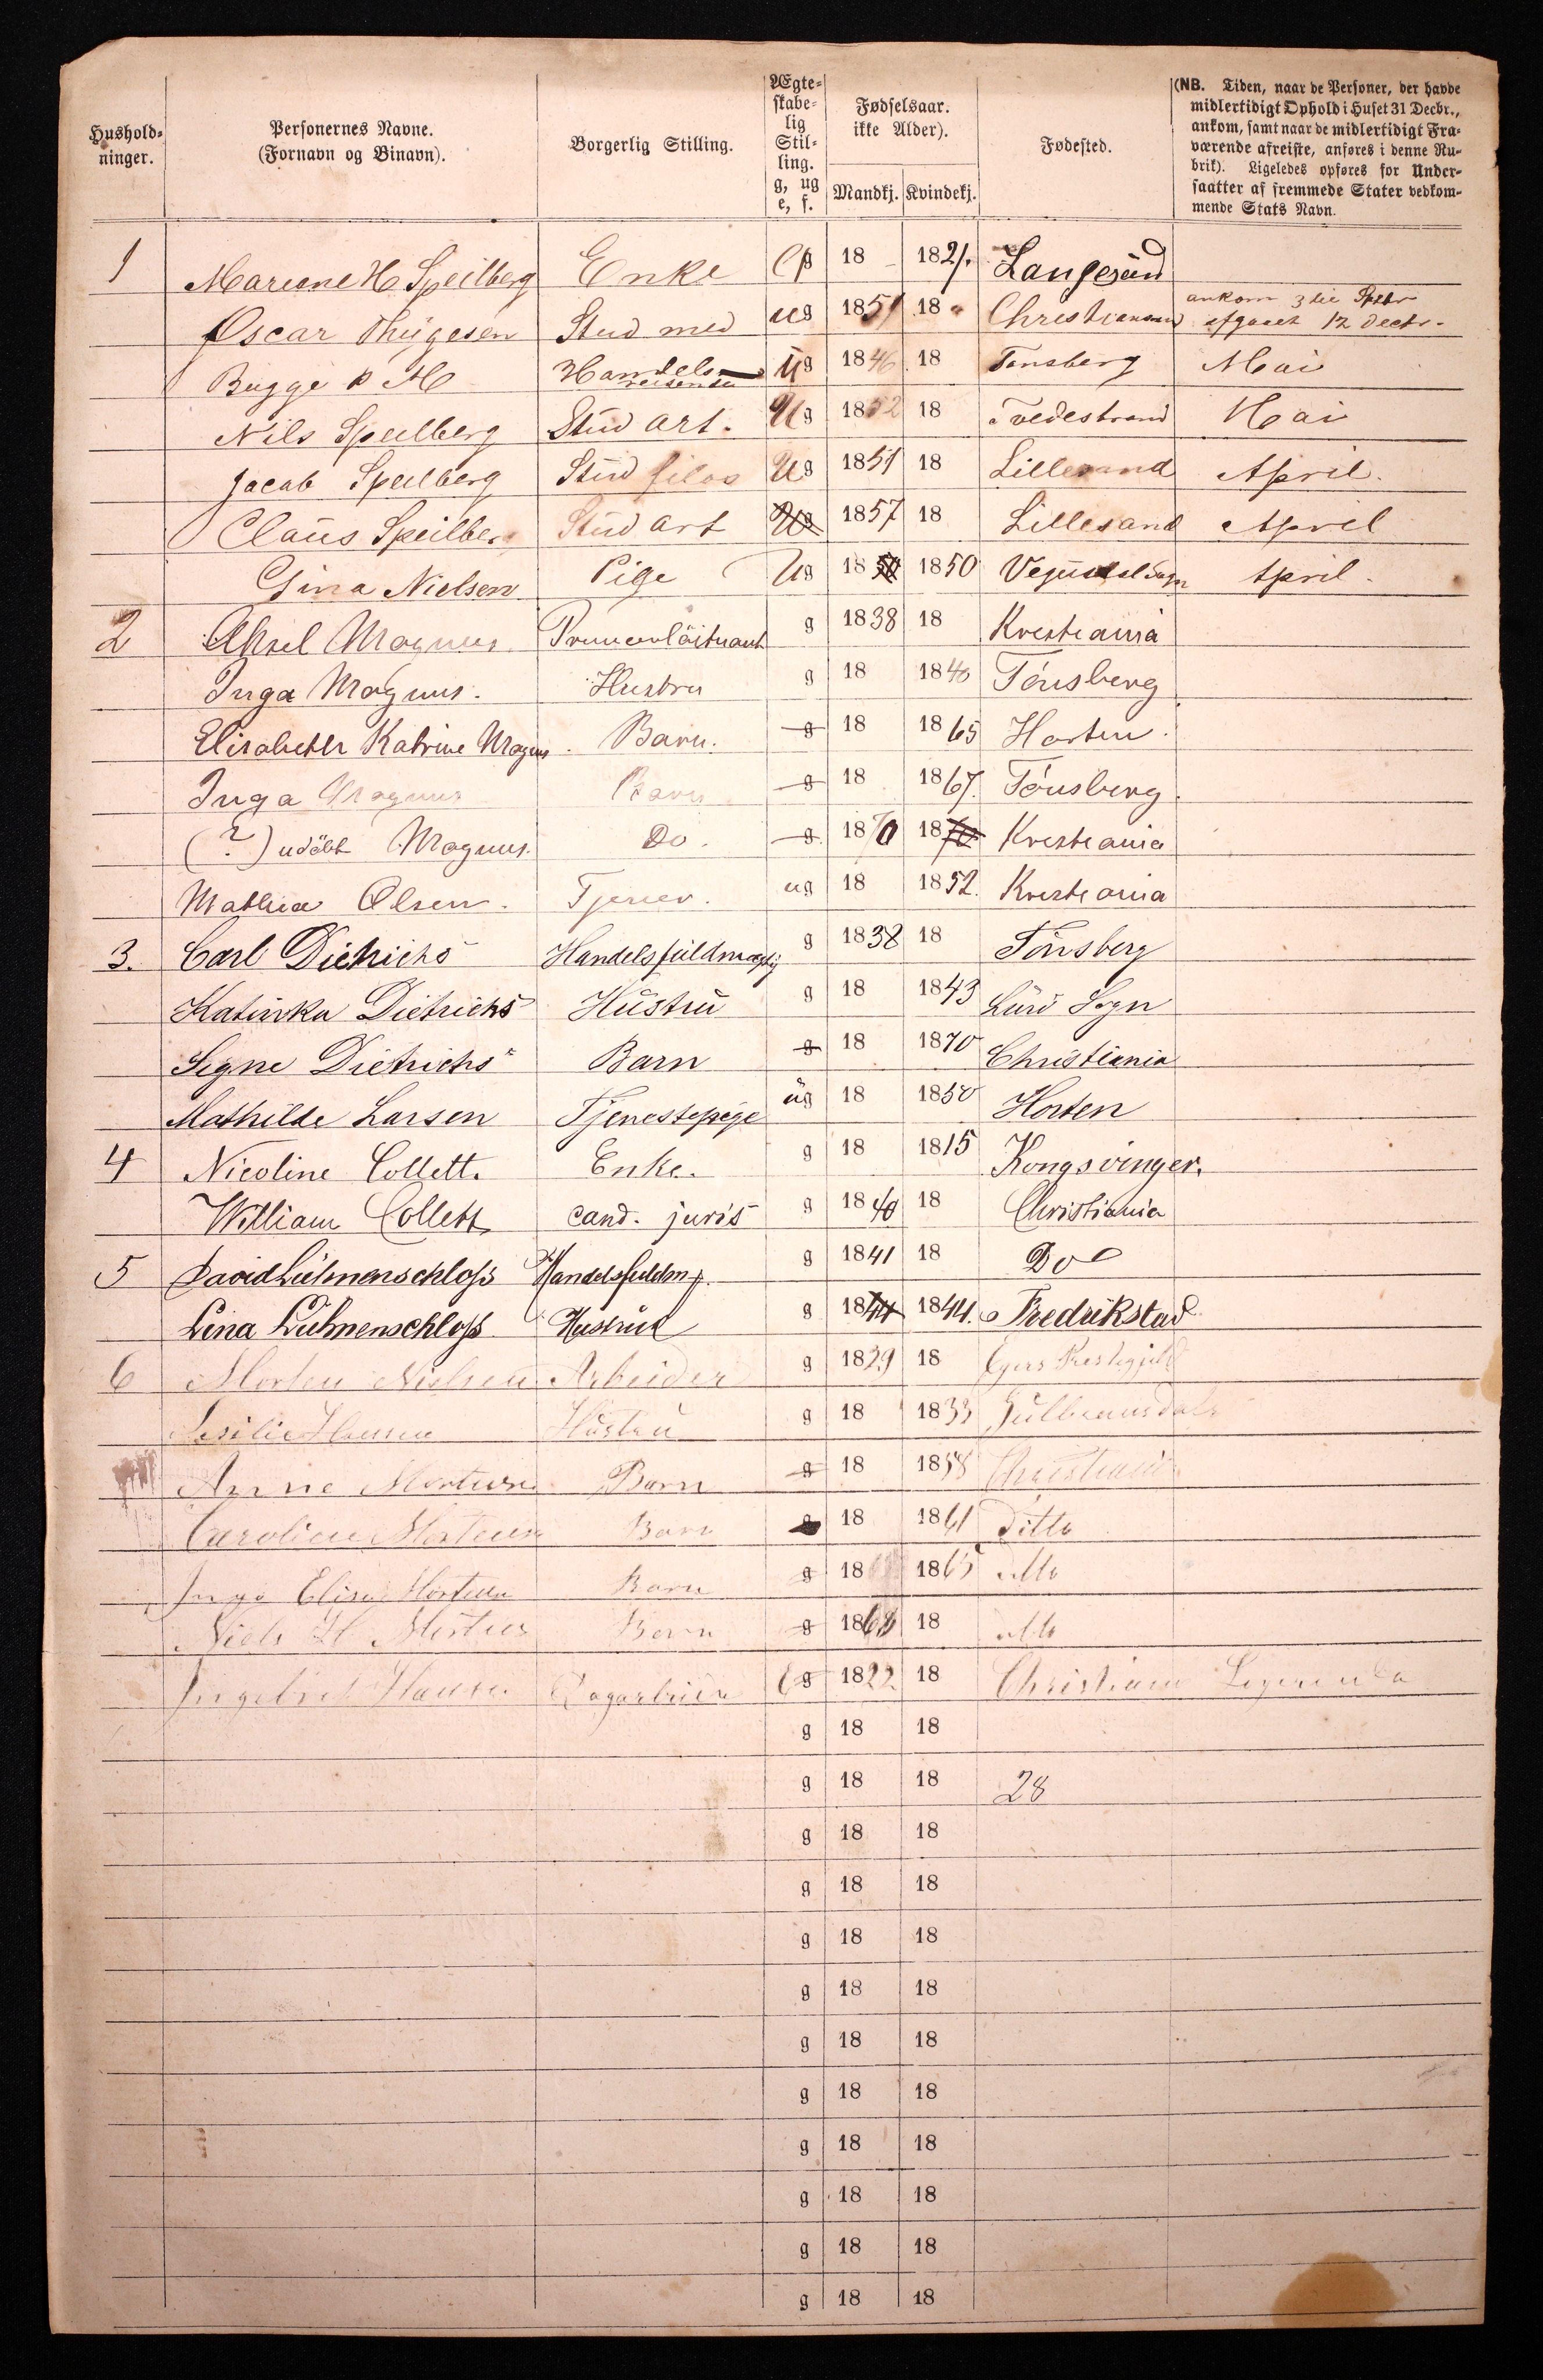 Hushold-
ninger.
Personernes Navne.
(Fornavn og Binavn).
Borgerlig Stilling.
Ægte-
skabe-
lig
Stil-
ling.
g, ug
e, f.
Fødselsaar.
ikke Alder).
Mandkj. Kvindekj.
Fødested.
(NB. Tiden, naar de Personer, der havde
midlertidigt Ophold i Huset 31 Decbr.,
ankom, samt naar de midlertidigt Fra-
værende afreiste, anføres i denne Ru-
brik). Ligeledes opføres for Under-
saatter af fremmede Stater vedkom-
mende Stats Navn.
1 Mariane H Speilberg Enke 18 1821. Langesund
Oscar Thygesen Stud med ug 1851 18 Christiansund ankom 3die
afgaaet 12 Decbr.
Bugge P M Handelsreisende ug 1846 18 Tønsberg Mai
Nils Speilberg Stud art. Ug 1852 18 Tvedestrand Mai
Jacob Speilberg Stud filos Ug 1851 18 Lillesand April.
Claus Speilberg Stud art Ug 1857 18 Lillesand April
Gina Nielsen Pige Ug 18 50 1850 April.
2 Aksel Magnus. g 1838 18 Kristiania
Inga Magnus. Hustru g 18 1840 Tönsberg
Elisabeth Katrine Magnus. Barn. g 18 1865 Horten.
Inga Magnus Barn g 18 1867. Tönsberg.
(?) udöbt Magnus. Do. g 1870 1870 Kristiania
Mathea Olsen. Tjener. ug 18 1852. Kristiania
3. Carl Dietrichs Handelsfuldmægtig g 1838 18 Tönsberg
Katinka Dietrichs Hustru g 18 1843 Sogn
Signe Dietrichs Barn g 18 1870 Christiania
Mathilde Larsen Tjenestepige ug 18 1850 Horten
4 Nicoline Collett. Enke. g 18 1815 Kongsvinger.
William Collett cand. juris g 1840 18 Christiania
5 David Lühmenschloss Handelsfuldm. g 1841 18 Do
Lina Lühmenschloss Hustru g 1844 1844. Fredrikstad
6 Morten Nielsen Arbeider g 1829 18 Egers Prestegjeld
Hansen Hustru g 18 1833
Anne Mortensen Barn g 18 1858 Christiania
Caroline Mortensen Barn g 18 1861 ditto
Inga Elise Mortensen Barn g 18 1865 ditto
Niels H Mortens Barn g 1868 18 ditto
Ingebret Hansen g 1822 18 Christiania
g 18 18
g 18 18 28
g 18 18
g 18 18
g 18 18
g 18 18
g 18 18
g 18 18
g 18 18
g 18 18
g 18 18
g 18 18